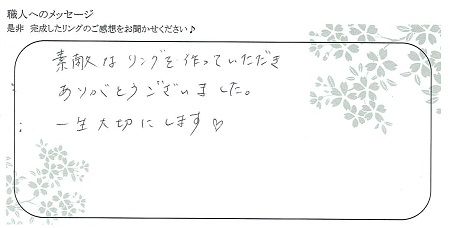 職人へのメッセージ
是非 完成したリングのご感想をお聞かせください♪
素敵なリングを作っていただき
ありがとうございました。
一生大切にします♡